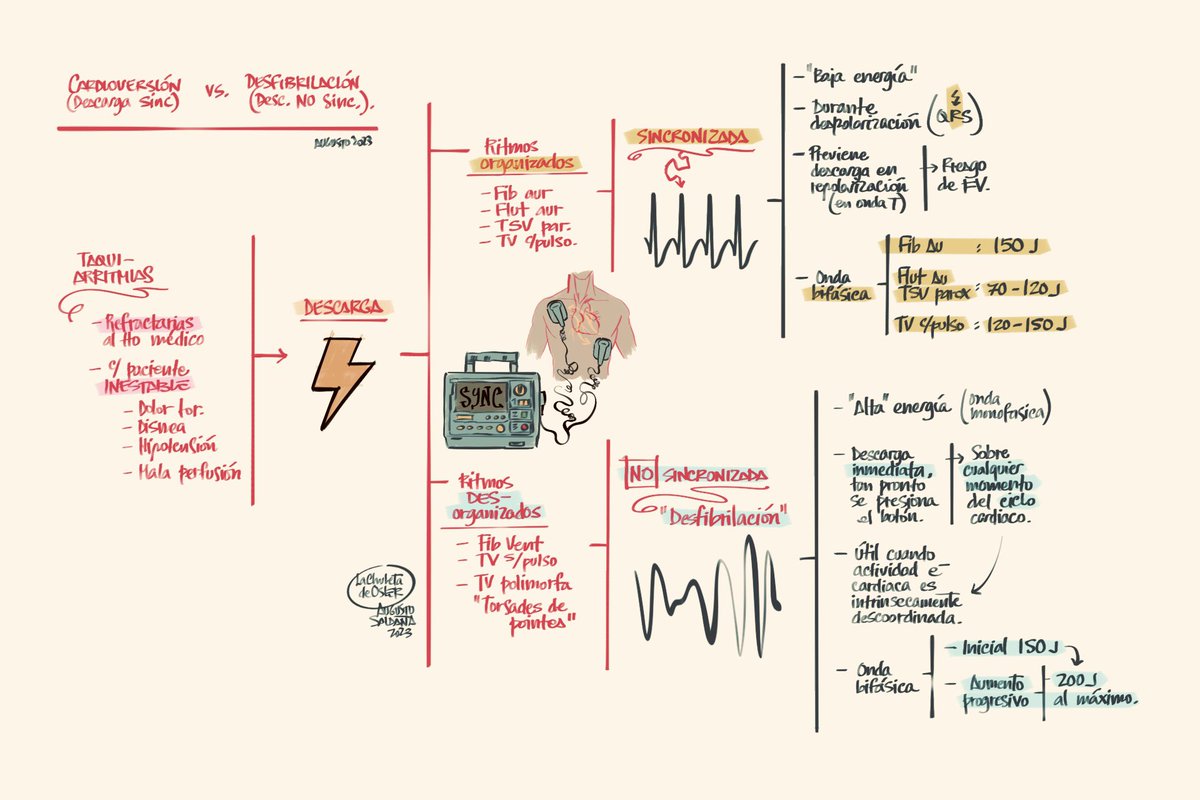 CARDIOVERSIÓN
(Descarga sinc)
vs.
DESFIBRILACIÓN
(Desc. NO Sinc.).
AUGUSTO 2023
TAQUI-
ARRITMIAS
- Refractarias
al tto médico
- c/ paciente
INESTABLE
- Dolor tor.
- Disnea
- Hipotensión
- Mala perfusión
DESCARGA
- Ritmos
organizados
- Fib aur
- Flut aur
- TSV par.
- TV c/pulso.
SINCRONIZADA
- "Baja energía"
- Durante
despolarización
(QRS)
- Previene
descarga en
repolarización
(en onda T)
→ Riesgo
de FV.
- Onda
bifásica
Fib Au : 150 J
Flut Au
TSV parox : 70-120 J
TV c/pulso : 120-150 J
SYNC
- Ritmos
DES-
organizados
- Fib Vent
- TV s/pulso
- TV polimorfa
"Torsades de
pointes"
NO SINCRONIZADA
"Desfibrilación"
- "Alta" energía (onda
monofásica)
- Descarga
inmediata,
tan pronto
se presiona
el botón.
→ Sobre
cualquier
momento
del ciclo
cardiaco.
- Útil cuando
actividad e-
cardiaca es
intrínsecamente
descoordinada.
- Onda
bifásica
- Inicial 150 J
- Aumento
progresivo
- 200 J
al máximo.
La Chuleta
de Osler
AUGUSTO
SALDAÑA
2023